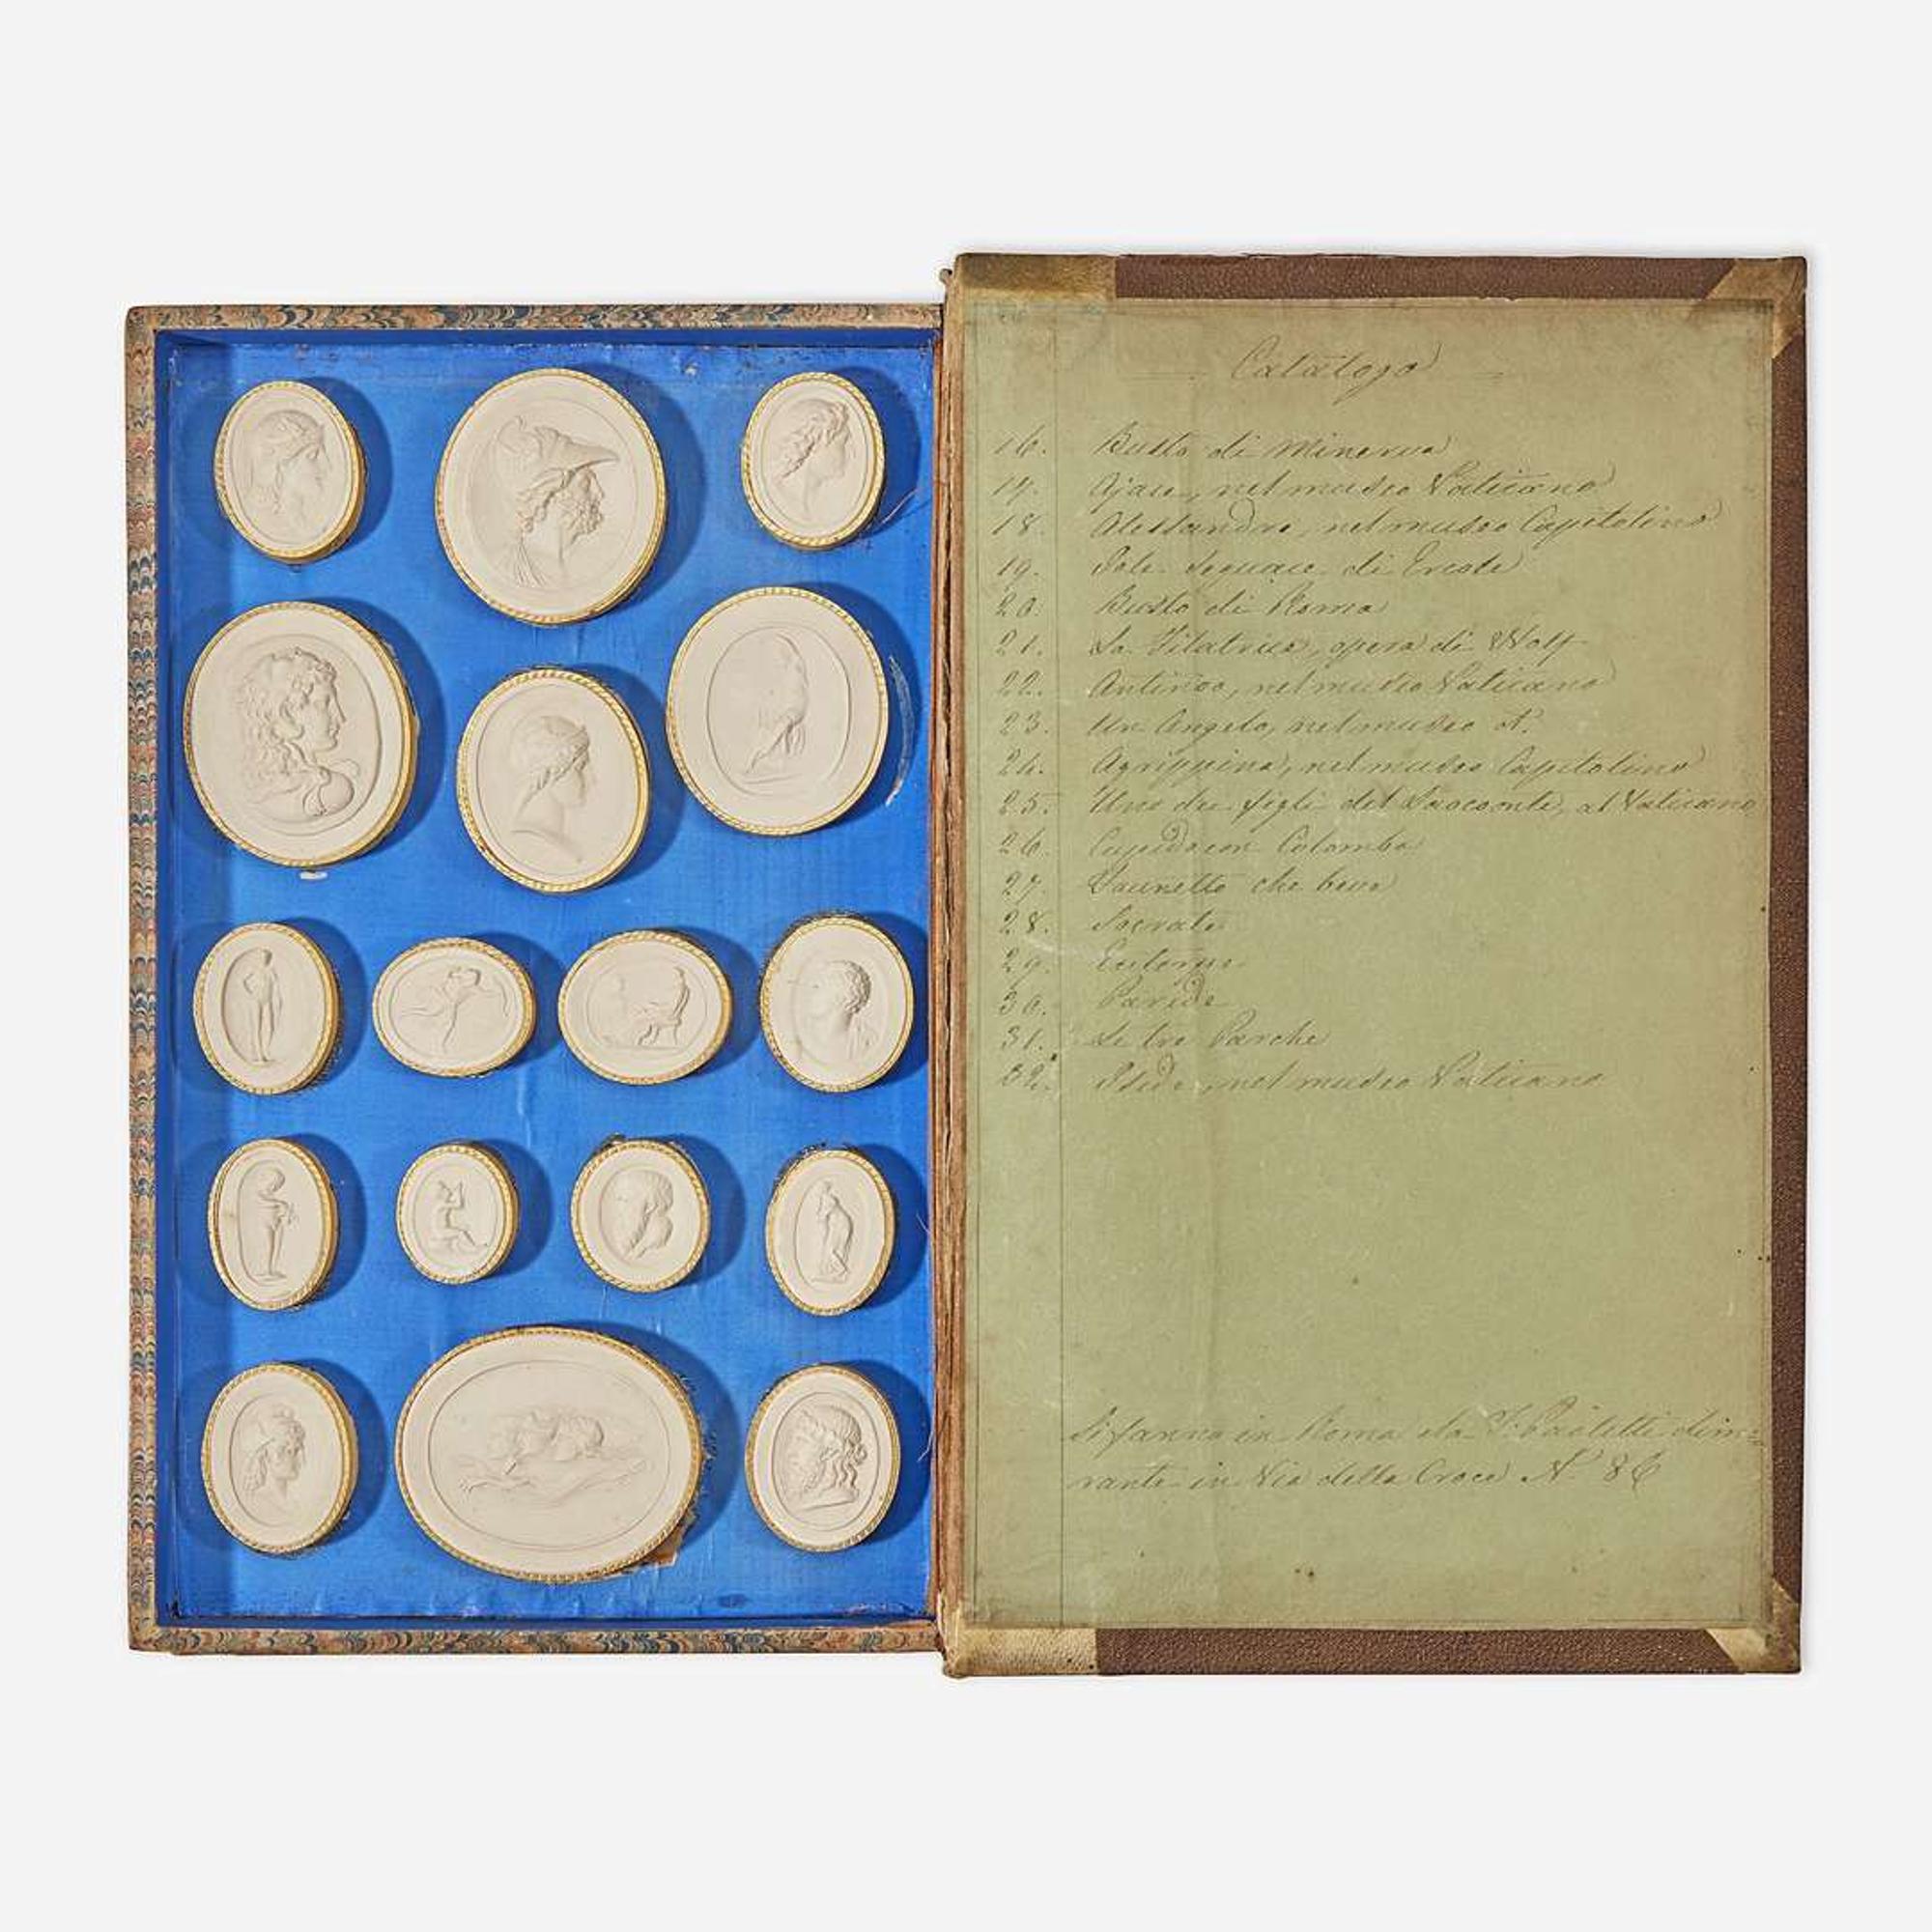 Catalogo
16. Busto di Minerva
17. Ajace, nel museo Vaticano
18. Alessandro, nel museo Capitolino
19. Iole seguace di Ercole
20. Busto di Roma
21. La Filatrice, opera di Wolf
22. Antinoo, nel museo Vaticano
23. Un Angelo, nel museo
24. Agrippina, nel museo Capitolino
25. Uno dei figli del Laocoonte, al Vaticano
26. Cupido con Colomba
27. Faunetto che beve
28. Socrate
29. Euterpe
30. Paride
31. Le tre Parche
32. nel museo Vaticano
Si fanno in Roma da Paoletti dimo=
rante in Via della Croce N. 86